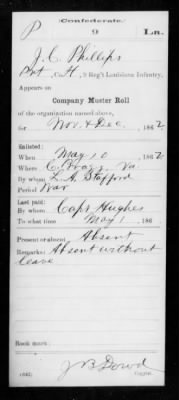 Confederate.
P 9 La.
J. C. Phillips
Pvt, Co. H, 9 Reg't Louisiana Infantry.
Appears on
Company Muster Roll
of the organization named above,
for Nov. & Dec., 1862
Enlisted:
When May 10 1862
Where C. Va.
By whom L. A. Stafford
Period War
Last paid:
By whom Capt Hughes
To what time May 1, 186
Present or absent Absent
Remarks: Absent without
leave
Book mark:
J B Dowd
(642) Copyist.